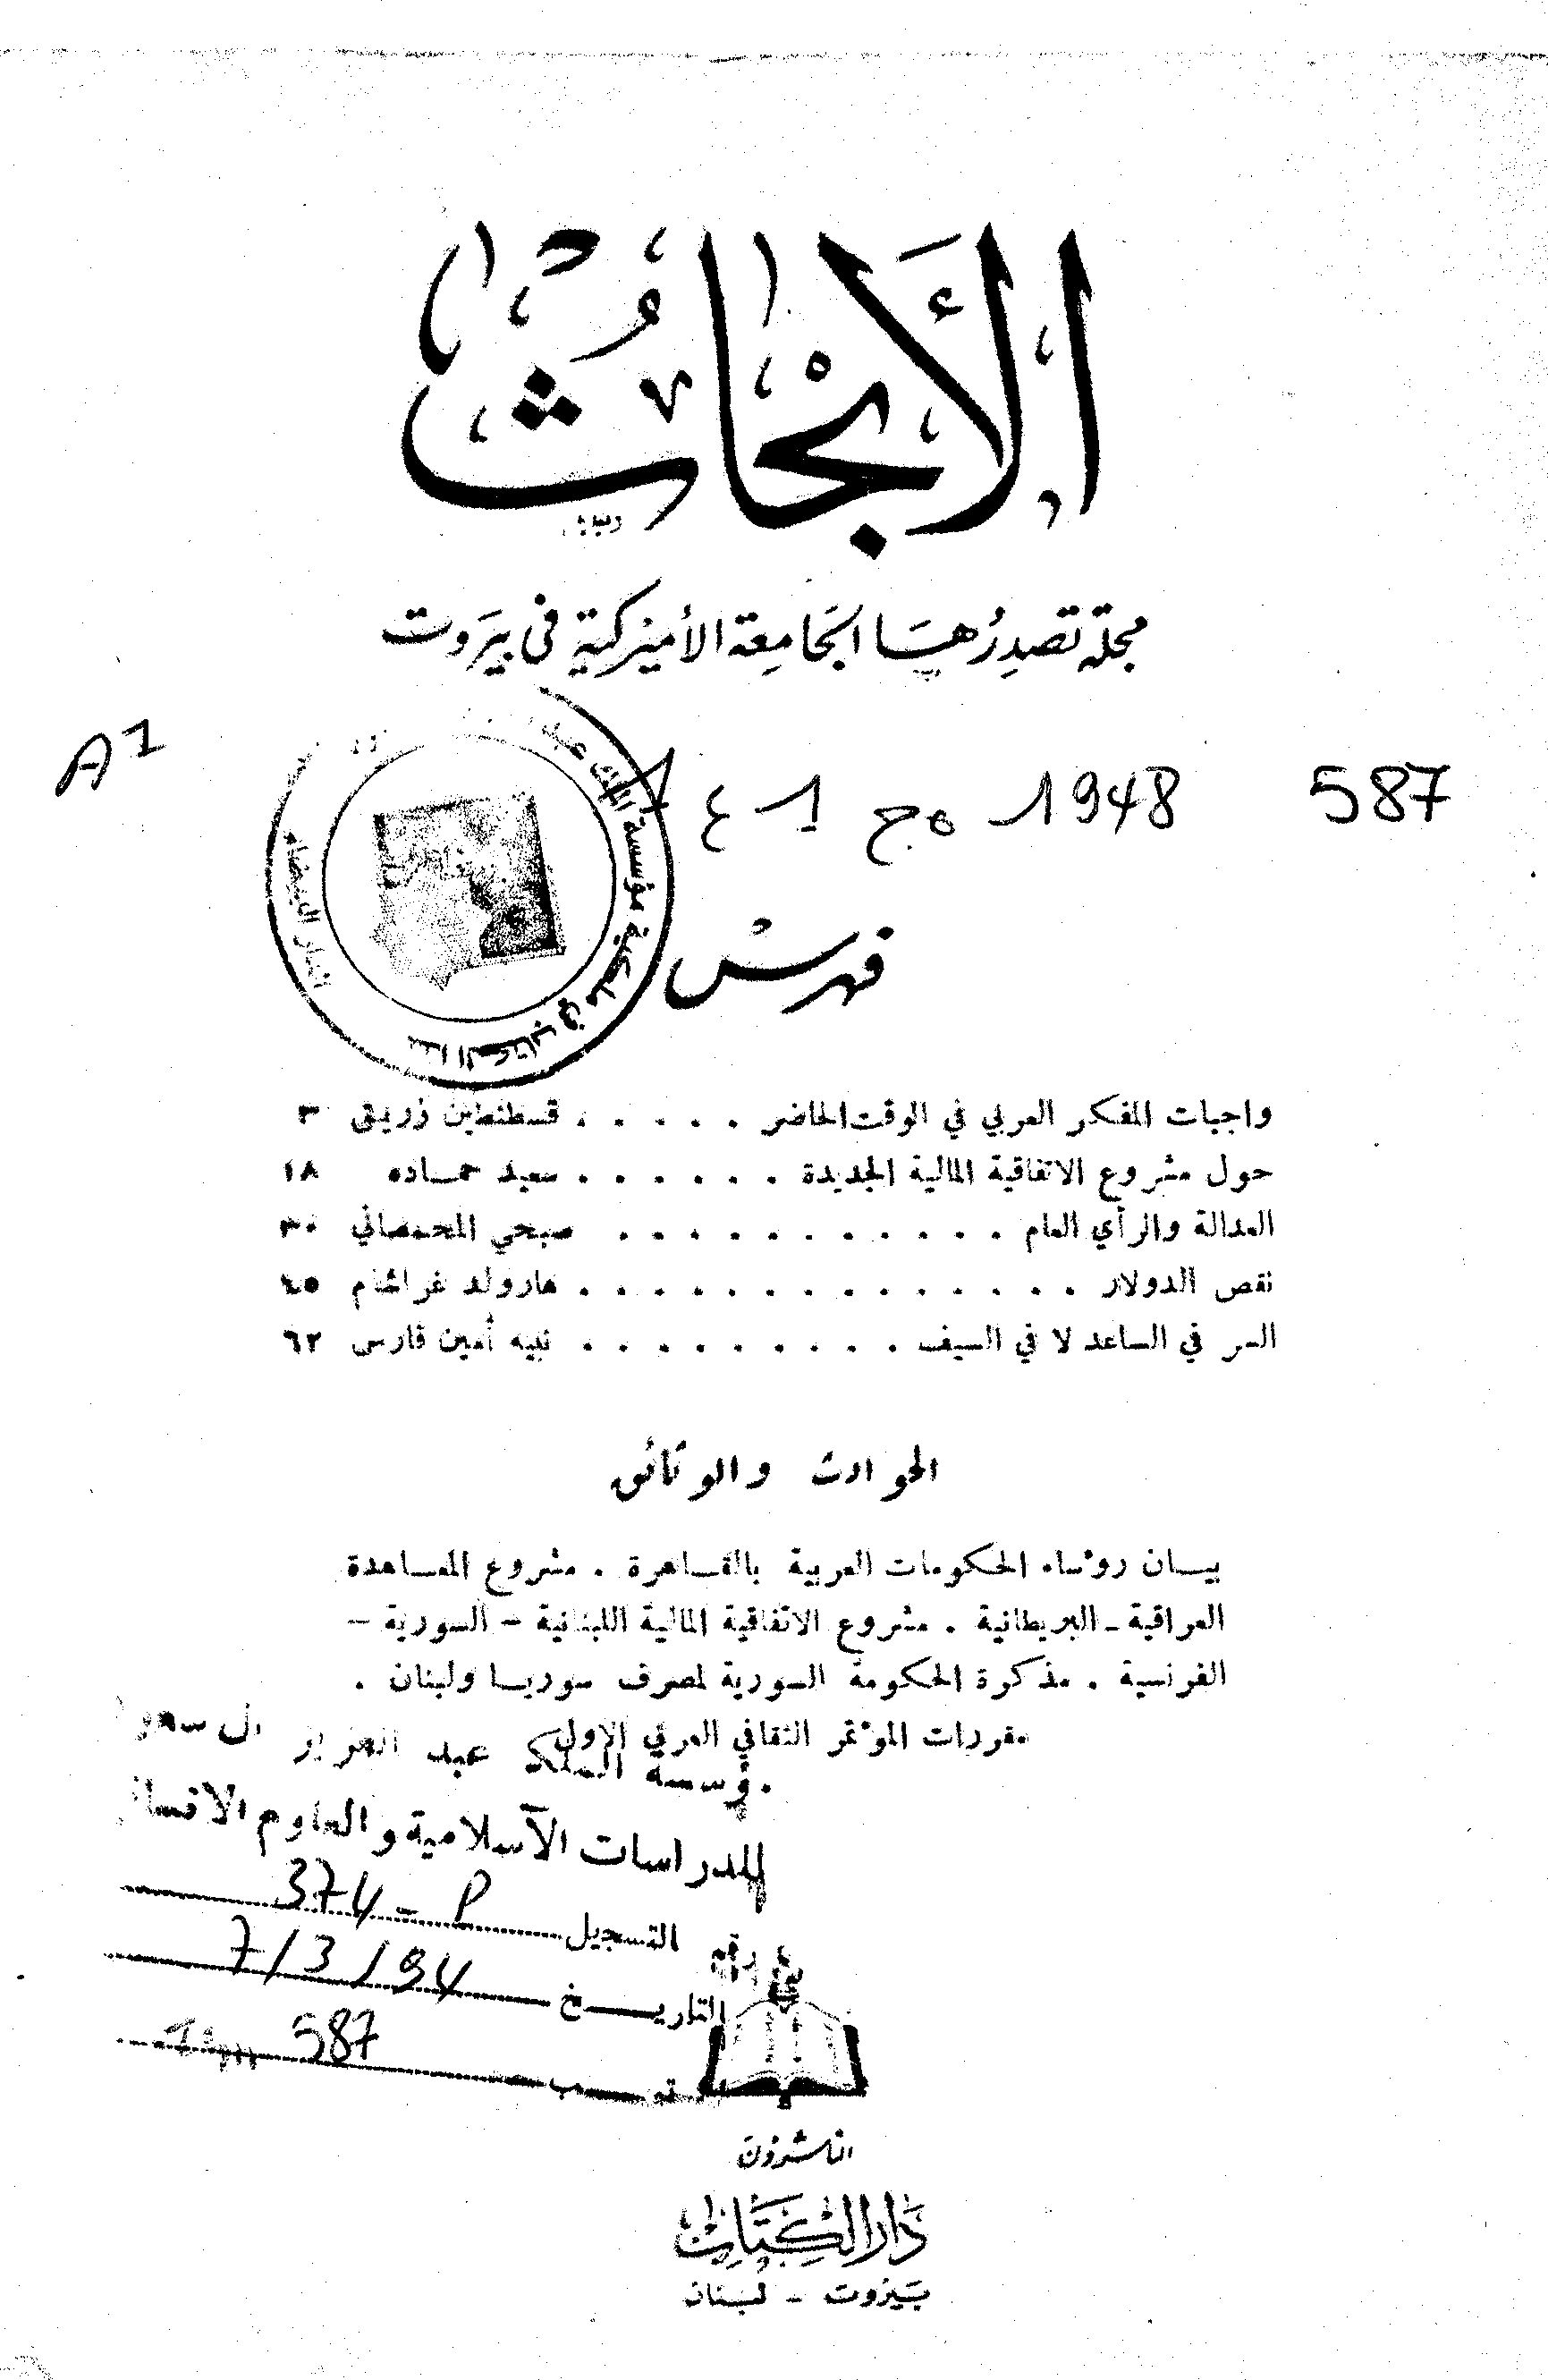 الأبحاث
مجلة تصدرها الجامعة الأميركية في بيروت
A1
587 1948 ج 1 ع
فهرس
واجبات المفكر العربي في الوقت الحاضر . . . . . قسطنطين زريق ٣
حول مشروع الاتفاقية المالية الجديدة . . . . . . سعيد حماده ١٨
العدالة والرأي العام . . . . . . . . . . . صبحي المحمصاني ٣٠
نقص الدولار . . . . . . . . . . . . . . هارولد غراهام ٤٥
السر في الساعد لا في السيف . . . . . . . . . نبيه أمين فارس ٦٢
الحوادث والوثائق
بيان روٴساء الحكومات العربية بالقاهرة . مشروع المعاهدة
العراقية - البريطانية . مشروع الاتفاقية المالية اللبنانية - السورية -
الفرنسية . مذكرة الحكومة السورية لمصرف سوريا ولبنان .
مقررات الموٴتمر الثقافي العربي الاول
مؤسسة الملك عبد العزيز آل سعود
للدراسات الآسلامية والعلوم الانسانية
رقم التسجيل 374 - P
التاريخ 7/3/94
587
الناشرون
دار الكتاب
بيروت - لبنان